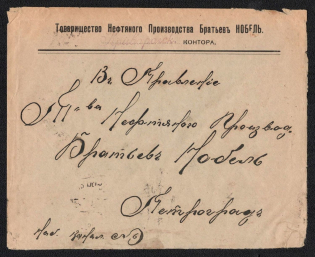 Товарищество Нефтяного Производства Братьевъ НОБЕЛЬ.
КОНТОРА.
Въ Правленіе
Т-ва Нефтяного Производ.
Братьевъ Нобель
Петроградъ